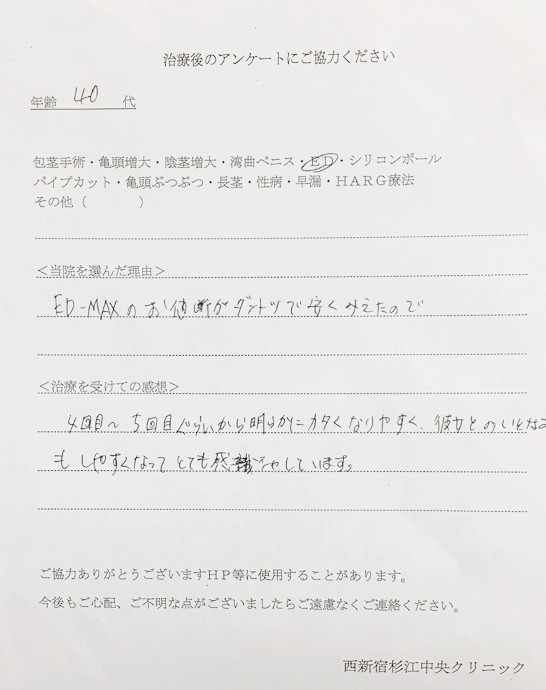 治療後のアンケートにご協力ください
年齢 40 代
包茎手術・亀頭増大・陰茎増大・湾曲ペニス・ED・シリコンボール
パイプカット・亀頭ぶつぶつ・長茎・性病・早漏・HARG療法
その他（　　　）
＜当院を選んだ理由＞
ED-MAXのお値断がダントツで安くみえたので
＜治療を受けての感想＞
4回目～5回目ぐらいから明らかにカタくなりやすく、彼女とのいとなみ
もしやすくなってとても感謝しています。
ご協力ありがとうございますHP等に使用することがあります。
今後もご心配、ご不明な点がございましたらご遠慮なくご連絡ください。
西新宿杉江中央クリニック